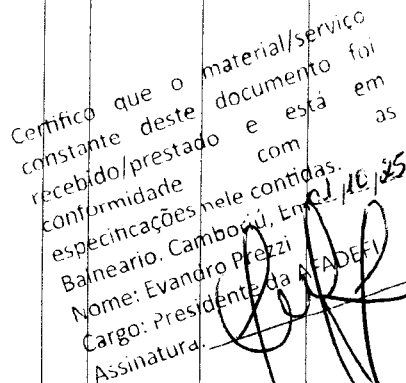 Certifico que o material/serviço
constante deste documento foi
recebido/prestado e está em
conformidade com as
especificações nele contidas.
Balneario. Camboriú, Em
Nome: Evandro Prezzi
Cargo: Presidente da AFADEFI
Assinatura: